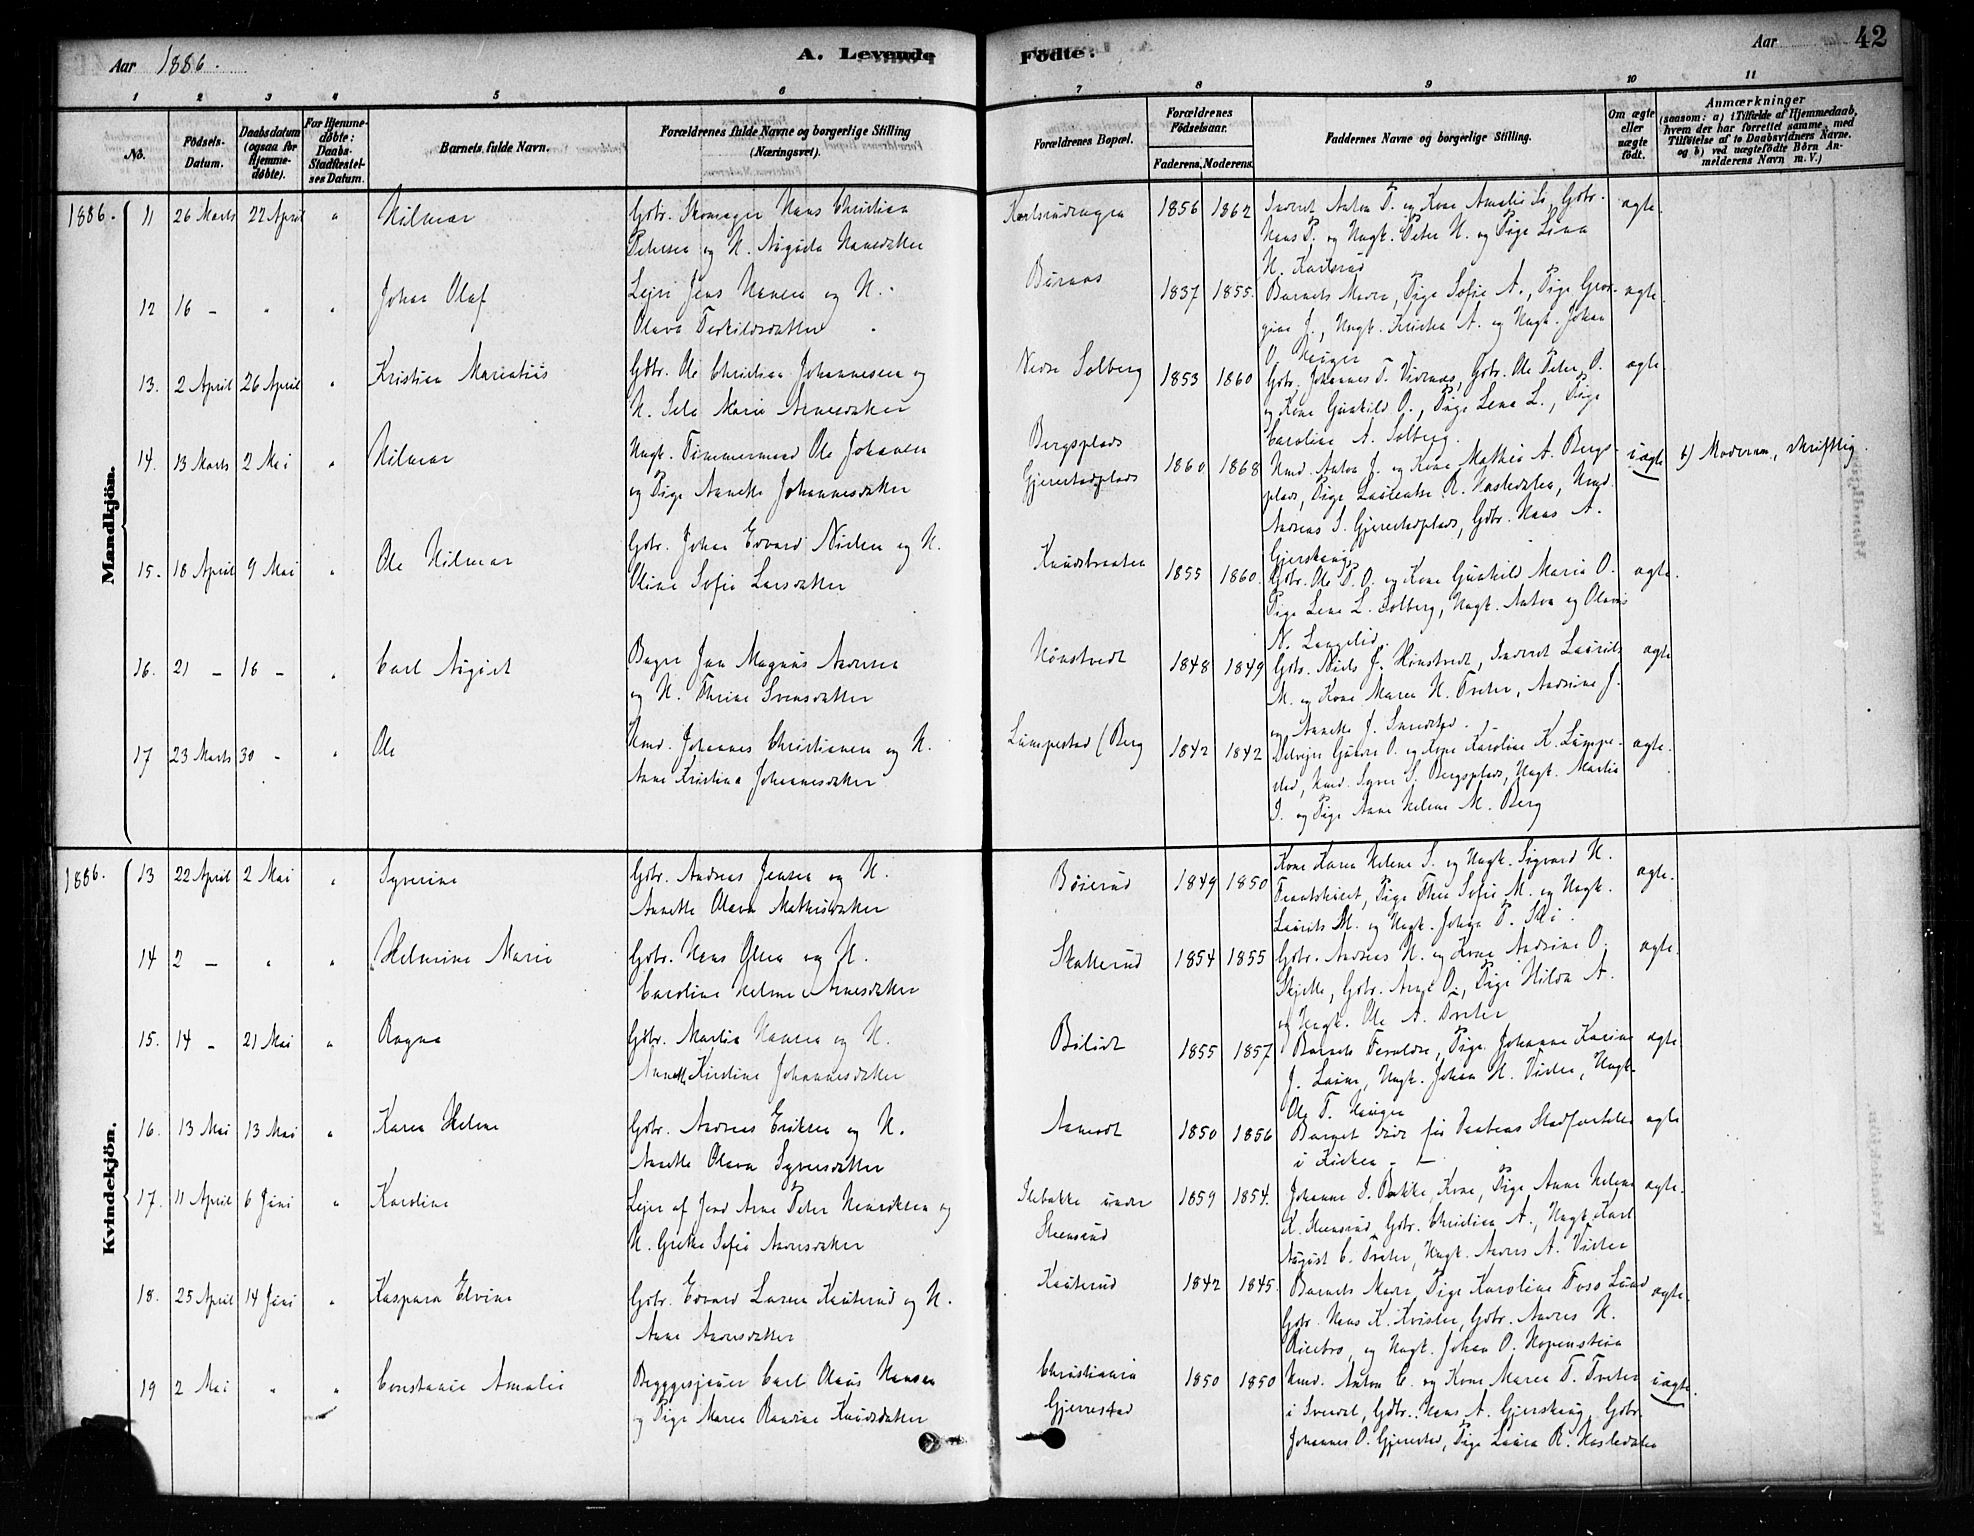 Aar 1886.
A. Levende Födte.
Aar
42
1 2 3 4 5 6 7 8 9 10 11
No.
Födsels-Datum.
Daabsdatum (ogsaa for Hjemme-döbte).
For Hjemme-döbte: Daabs-Stadfæstel-ses Datum.
Barnets fulde Navn.
Forældrenes fulde Navne og borgerlige Stilling (Næringsvei).
Forældrenes Bopæl.
Forældrenes Födselsaar.
Faderens. Moderens.
Faddernes Navne og borgerlige Stilling.
Om ægte eller uægte födt.
Anmærkninger (saasom: a) i Tilfælde af Hjemmedaab, hvem der har forrettet samme, med Tilföielse af to Daabsvidners Navne. og b) ved uægtefödte Börn Anmelderens Navn m. V.)
Mandkjön.
1886. 11 26 Marts 22 April " Hilmar
Gbr. Skomager Hans Christian
Petersen og H. Augusta Hansdatter
1856 1862
Inderst Anton P. og Kone Amalie S., Gbr.
Hans P. og Ungk. Peter H. og Pige Lina
H. Karlsrud
ægte.
12 16 - " " Johan Olaf
Leier Jens Hansen og H.
Olava Terkildsdatter
Buraas
1837 1855.
Barnets Moder, Pige Sofie A., Pige Geor-
gine J., Ungk. Kristen A. og Ungk. Johan
O. Hauger
ægte.
13. 2 April 26 April " Kristian Marentius
Gbr. Ole Christian Johannesen og
H. Marie
Nedre Solberg
1853 1860
Gbr. Johannes T. Gbr. Ole Peter O.
og Kone Gunhild O., Pige Lene L., Pige
Caroline A. Solberg.
ægte.
14. 13 Marts 2 Mai " Hilmar
Ungk. Tømmermand Ole Johansen
og Pige Annette Johannesdatter
Bergsplads
Gjerestadplads
1860 1868
Hmd. Anton J. og Kone Mathea A. Bergs-
plads, Pige Laurentse R. Hasledalen, Hmd.
Andreas S. Gjerestadplads, Gbr. Hans A.
Gjerskaug
uægte
b) Moderen, skriftlig.
15. 18 April 9 Mai " Ole Hilmar
Gbr. Johan Edvard Nielsen og H.
Oline Sofie Larsdatter
Knudsbraaten
1855 1860.
Gbr. Ole P. O. og Kone Gunhild Maria O.
Pige Lene L. Solberg, Ungk. Anton og Olavus
N. Langelid
ægte.
16. 21 - 16 - " Carl August
Bager Jan Magnus Andersen
og H. Thrine Svensdatter
Hønstvedt
1848 1849
Gbr. Niels J. Hønstvedt, Inderst Laurits
M. og Kone Maren H. Treter, Andrine J.
og Annette J.
ægte
17 23 Marts 30 - " Ole
Hmd. Johannes Christiansen og H.
Anne Kristine Johannesdatter
Lumpestad (Berg
1842 1842
Gunder O. og Kone Karoline K. Lumpe-
stad, Hmd. Syver S. Bergsplads, Ungk. Martin
S. og Pige Anne Helene M. Berg
ægte.
Kvindekjön.
1886. 13 22 April 2 Mai " Syverine
Gbr. Andreas Jensen og H.
Annette Olava Mathisdatter
Böierud
1849 1850
Kone Karen Helene S. og Ungk. Sigvard H.
Pige Thea Sofie M. og Ungk.
Laurits M. og Ungk. Johan P. Ski.
ægte.
14 2 - " " Helmine Marie
Gbr. Hans Olsen og H.
Caroline Helene Arnesdatter
Skullerud
1854 1855
Gbr. Andreas H. og Kone Andrine O.
Gbr. Arne O., Pige Hilda A.
og Ungk. Ole A. Treter
ægte.
15. 14 - 21 Mai " Ragna
Gbr. Martin Hansen og H.
Annette Kirstine Johannesdatter
1855 1857
Barnets Forældre, Pige Johanne Karine
J. Ungk. Johan H. Ungk.
Ole T. Hauger
ægte
16. 13 Mai 13 Mai " Karen Helene
Gbr. Andreas Eriksen og H.
Annette Olava Syversdatter
Aamodt
1850 1856
Barnet døde før Daabens Stadfæstelse
i Kirken
ægte
17. 11 April 6 Juni " Karoline
Leier af Jord Arne Peter Henriksen og
H. Grethe Sofie Andersdatter
under
Steensrud
1859 1854.
Johanne S. Bakke, Kone, Pige Anne Helene
K. Steensrud, Gbr. Christian A., Ungk. Karl
August C. Treter, Ungk. Anders A.
ægte.
18. 25 April 14 Juni " Kaspara Elvine
Gbr. Edvard Larsen Knuterud og H.
Anne Andersdatter
Knuterud
1842 1845.
Barnets Moder, Pige Karoline Foss Lund
Gbr. Hans K. Kvisler, Gbr. Anders H.
og Ungk. Johan O.
ægte.
19 2 Mai " " Constance Amalie
Carl Olaus Hansen
og Pige Maren Randine Knudsdatter
Christiania
Gjerrestad
1850 1850
Hmd. Anton C. og Kone Maren T. Treter
i Gbr. Hans A. Gjerskaug, Gbr.
Johannes O. Gjerestad, Pige Laura R. Hasledalen
uægte.